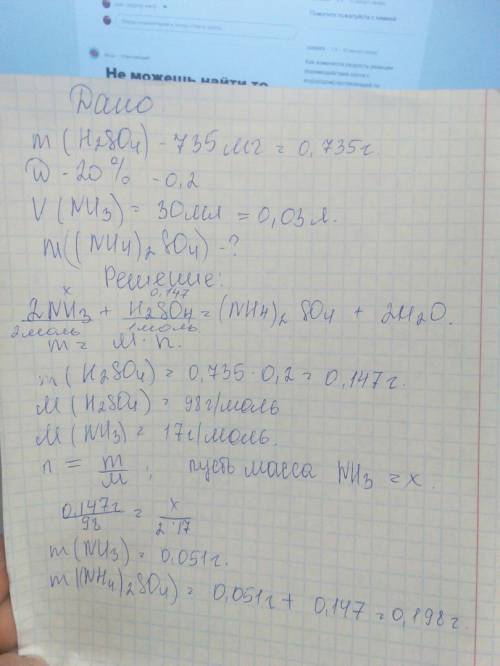 Не можешь найти то
Дано
m (H₂SO₄) - 735 мг = 0,735 г.
W - 20% - 0,2
V (NH₃) = 30 мл = 0,03 л.
m((NH₄)₂SO₄) - ?
Решение:
x 0,147
2NH₃ + H₂SO₄ = (NH₄)₂SO₄ + 2H₂O.
2моль 1моль
m = M · n.
m (H₂SO₄) = 0,735 · 0,2 = 0,147 г.
M (H₂SO₄) = 98 г/моль
M (NH₃) = 17 г/моль.
n = m/M ; пусть масса NH₃ = x.
0,147г/98 = x/2·17
m (NH₃) = 0,051 г.
m ((NH₄)₂SO₄) = 0,051г + 0,147 = 0,198 г.